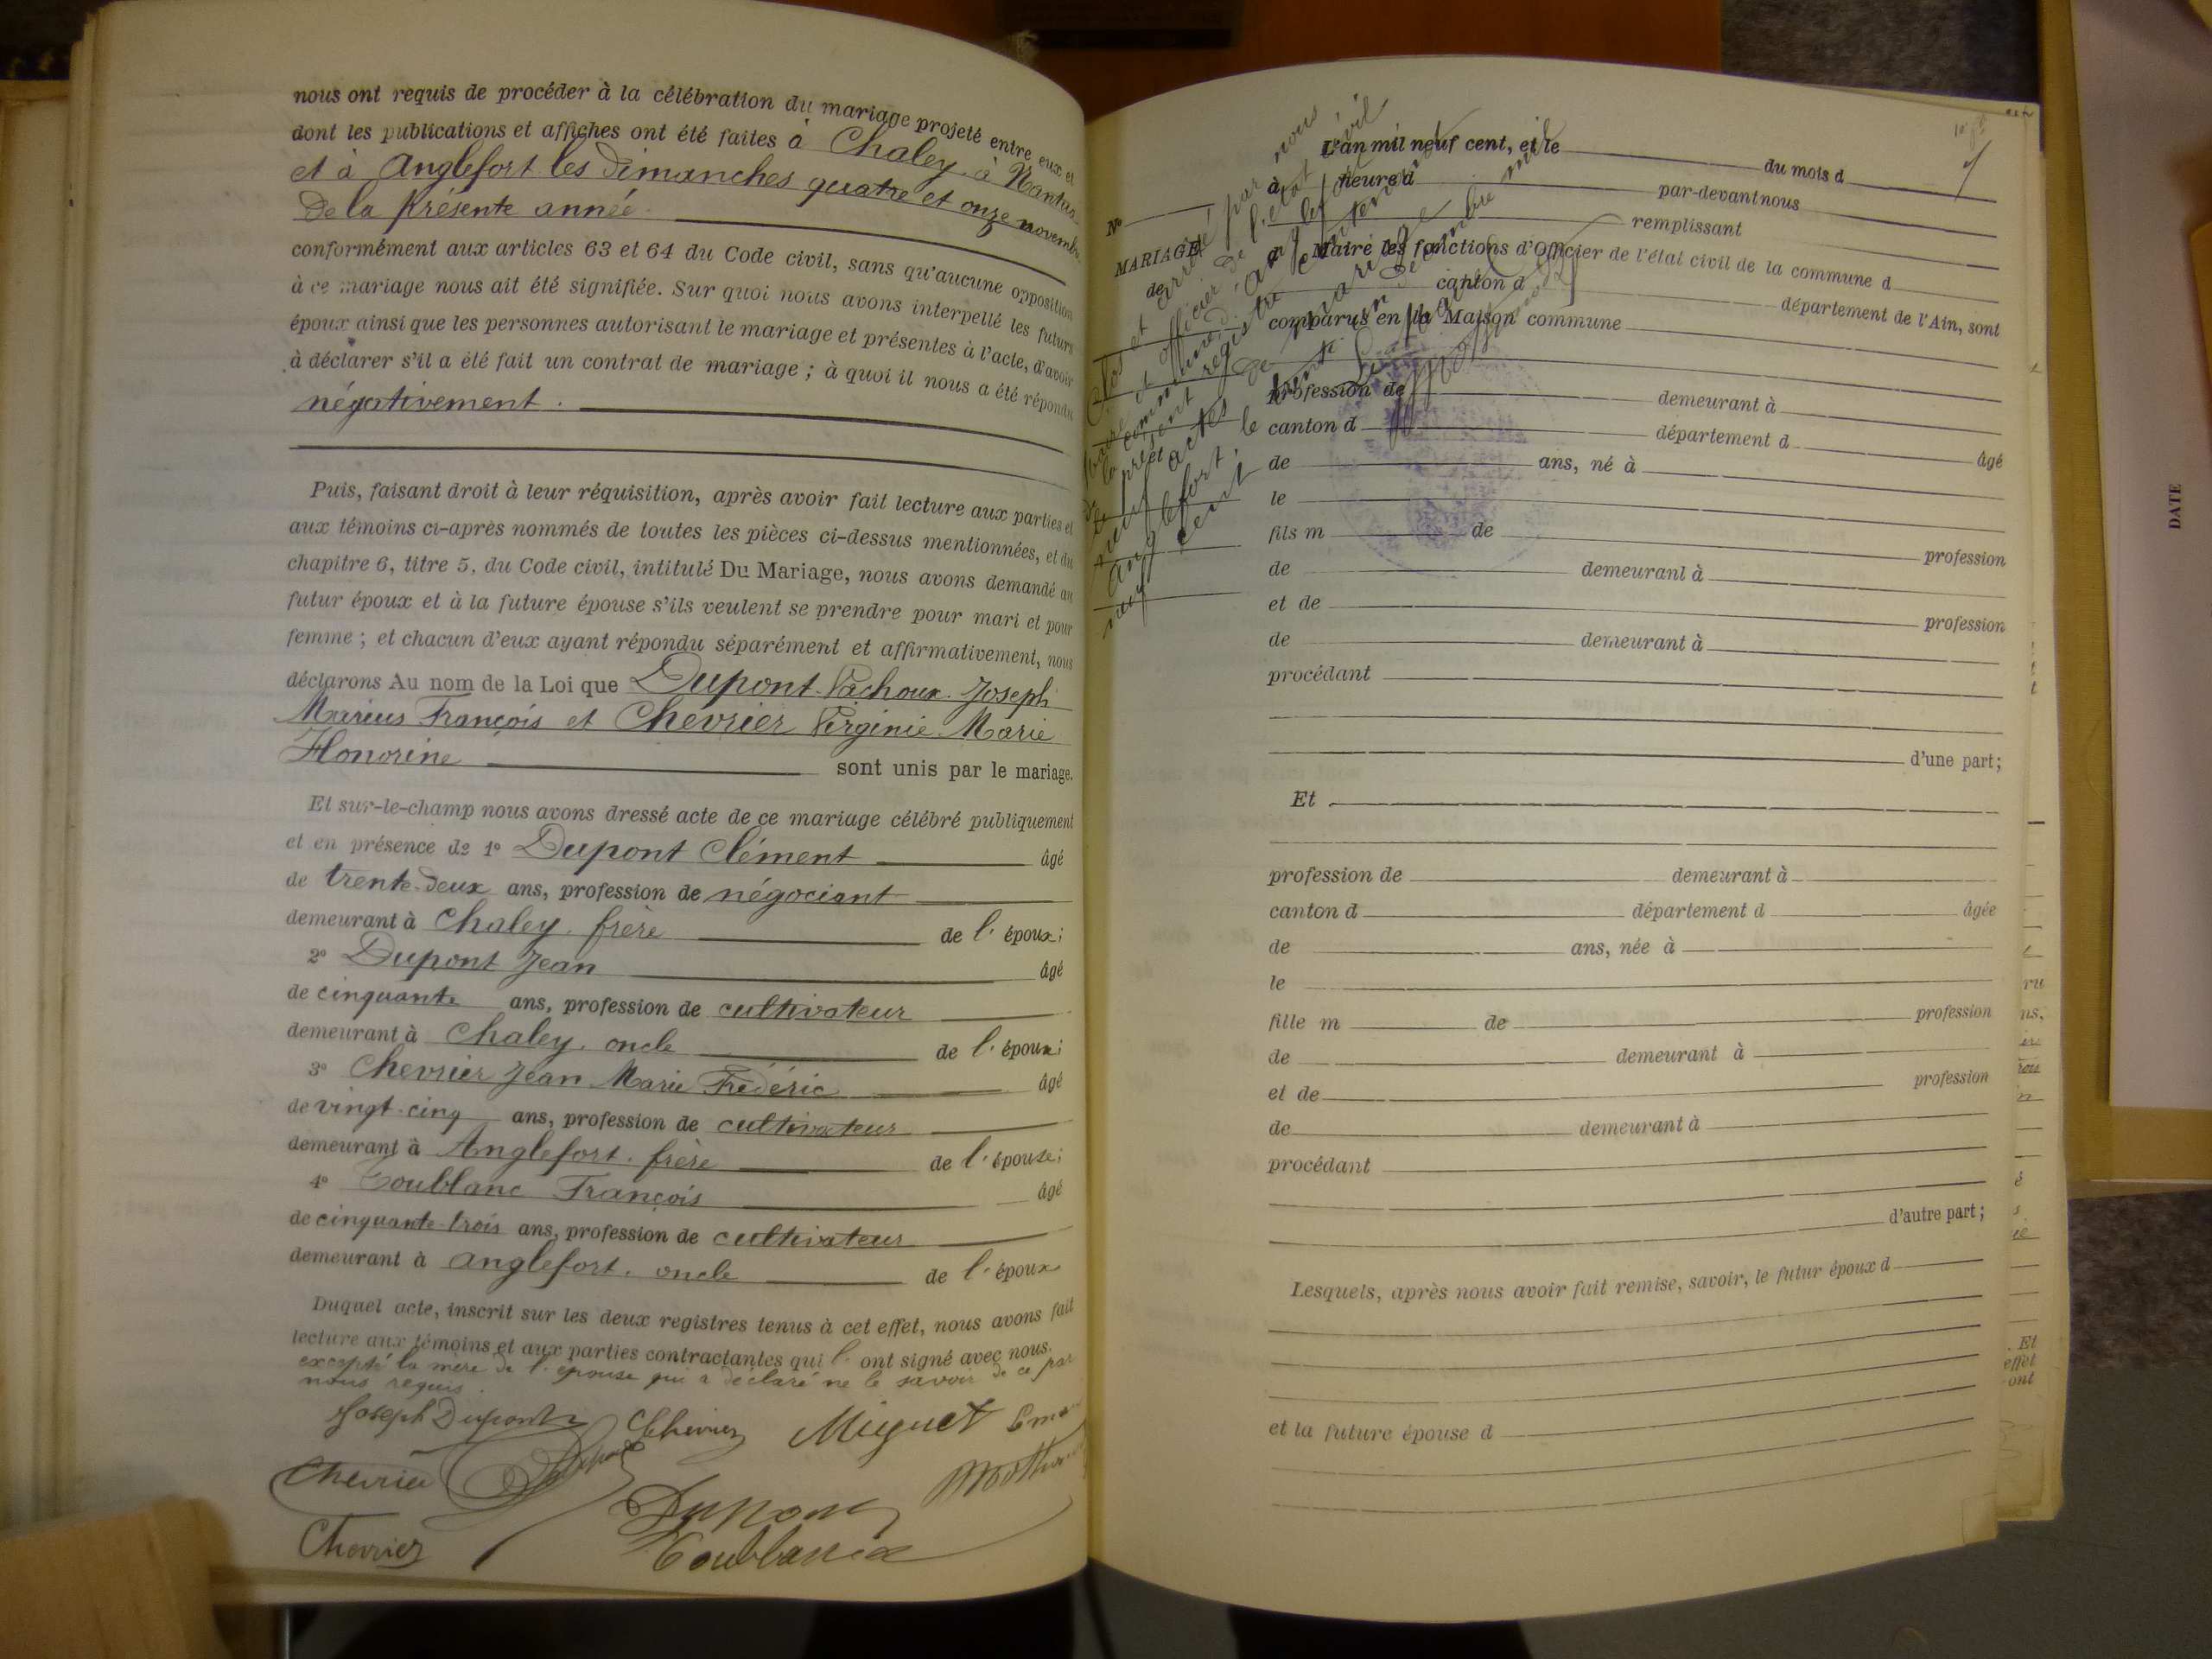 nous ont requis de procéder à la célébration du mariage projeté entre eux et
dont les publications et affiches ont été faites à Chaley, à Nantua
et à Anglefort les Dimanches quatre et onze novembre
de la Présente année
conformément aux articles 63 et 64 du Code civil, sans qu'aucune opposition
à ce mariage nous ait été signifiée. Sur quoi nous avons interpellé les futurs
époux ainsi que les personnes autorisant le mariage et présentes à l'acte, d'avoir
à déclarer s'il a été fait un contrat de mariage ; à quoi il nous a été répondu
négativement.
Puis, faisant droit à leur réquisition, après avoir fait lecture aux parties et
aux témoins ci-après nommés de toutes les pièces ci-dessus mentionnées, et du
chapitre 6, titre 5, du Code civil, intitulé Du Mariage, nous avons demandé au
futur époux et à la future épouse s'ils veulent se prendre pour mari et pour
femme ; et chacun d'eux ayant répondu séparément et affirmativement, nous
déclarons Au nom de la Loi que Dupont-Pachoux Joseph
Marius François et Chevrier Virginie Marie
Honorine sont unis par le mariage.
Et sur-le-champ nous avons dressé acte de ce mariage célébré publiquement
et en présence de 1° Dupont Clément âgé
de trente-deux ans, profession de négociant
demeurant à Chaley, frère de l' époux ;
2° Dupont Jean âgé
de cinquante ans, profession de cultivateur
demeurant à Chaley, oncle de l' époux ;
3° Chevrier Jean Marie Frédéric âgé
de vingt-cinq ans, profession de cultivateur
demeurant à Anglefort, frère de l' épouse ;
4° Coublanc François âgé
de cinquante-trois ans, profession de cultivateur
demeurant à Anglefort, oncle de l' époux
Duquel acte, inscrit sur les deux registres tenus à cet effet, nous avons fait
lecture aux témoins et aux parties contractantes qui l' ont signé avec nous.
excepté la mère de l'épouse qui a déclaré ne le savoir de ce par
nous requis.
Joseph Dupont Chevrier Miguet
Chevrier
Dupont
Chevrier Coublanc
Clos et arrêté par nous
maire et officier de l'état civil
de la commune d'Anglefort
le présent registre contenant
neuf actes de mariage
Anglefort, le trente un décembre mil
neuf cent
N°
MARIAGE
de
L'an mil neuf cent, et le du mois d
à heure d par-devant nous
remplissant
Maire les fonctions d'Officier de l'état civil de la commune d
canton d département de l'Ain, sont
comparus en la Maison commune
profession de demeurant à
canton d département d âgé
de ans, né à
le
fils m de profession
de demeurant à
et de profession
de demeurant à
procédant
d'une part ;
Et
profession de demeurant à
canton d département d âgée
de ans, née à
le
fille m de profession
de demeurant à
et de profession
de demeurant à
procédant
d'autre part ;
Lesquels, après nous avoir fait remise, savoir, le futur époux d
et la future épouse d
DATE